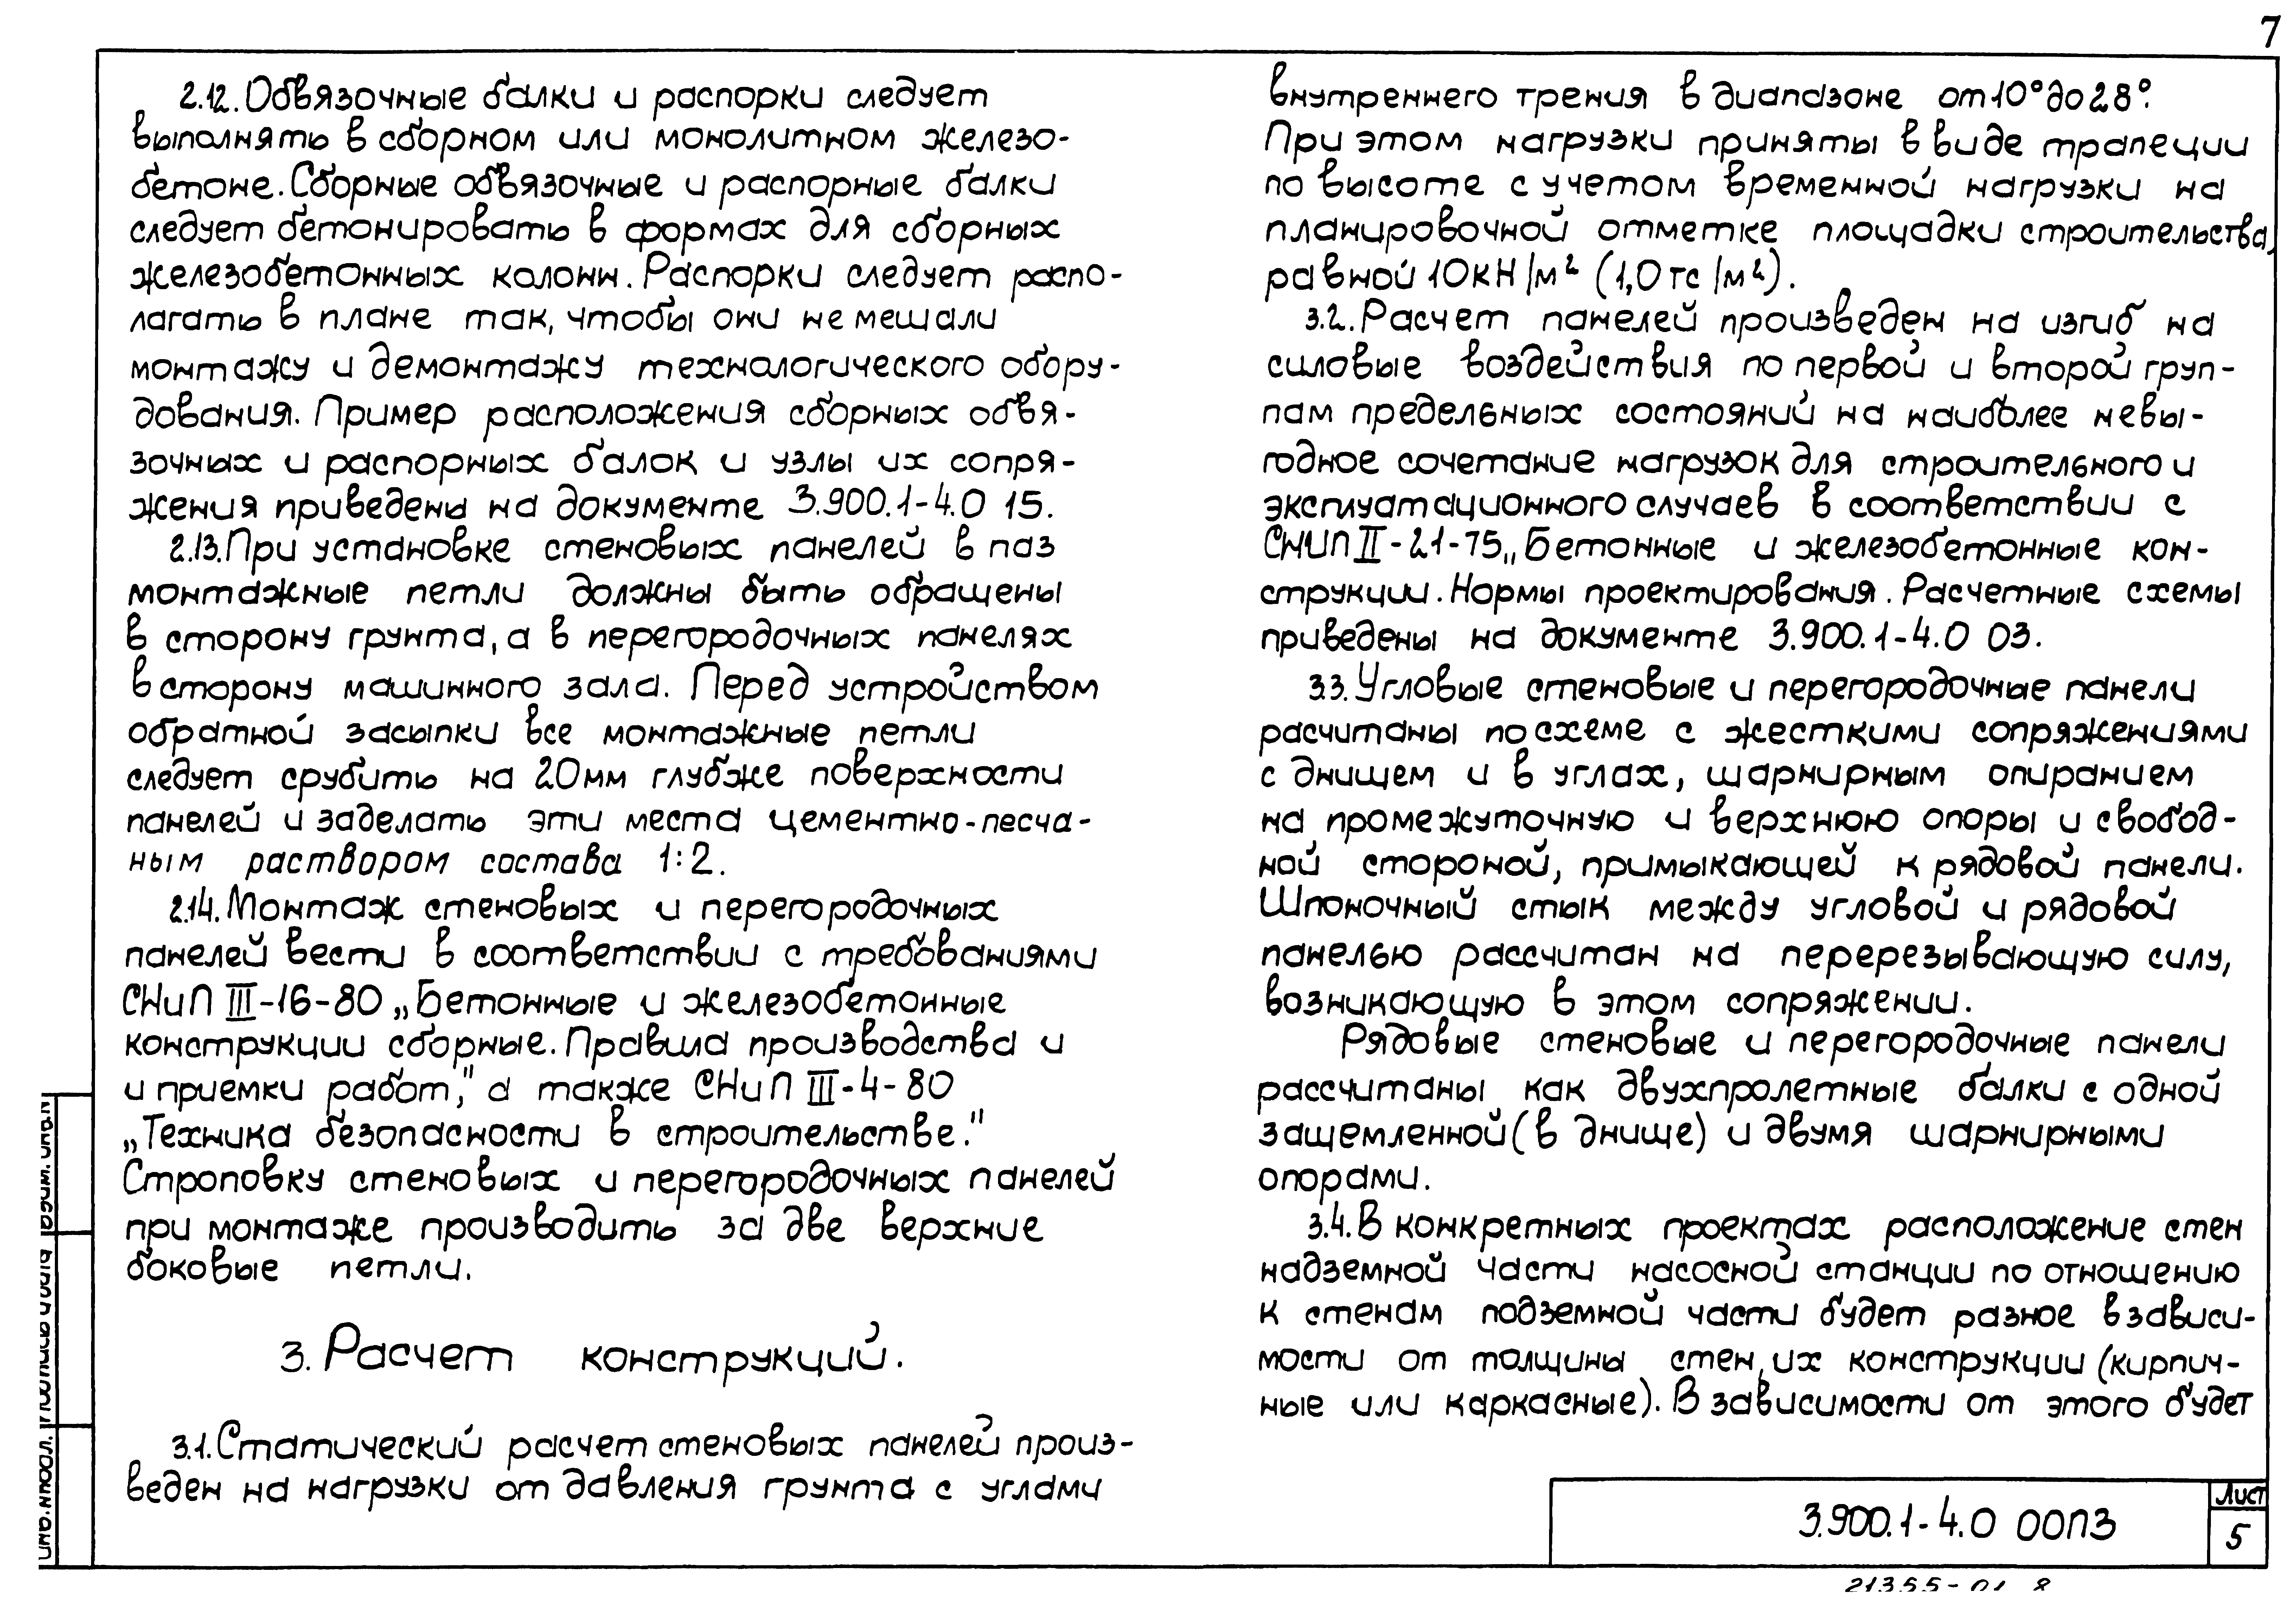 7
2.12. Обвязочные балки и распорки следует
выполнять в сборном или монолитном железо-
бетоне. Сборные обвязочные и распорные балки
следует бетонировать в формах для сборных
железобетонных колонн. Распорки следует распо-
лагать в плане так, чтобы они не мешали
монтажу и демонтажу технологического обору-
дования. Пример расположения сборных обвя-
зочных и распорных балок и узлы их сопря-
жения приведены на документе 3.900.1-4.0 15.
2.13. При установке стеновых панелей в паз
монтажные петли должны быть обращены
в сторону грунта, а в перегородочных панелях
в сторону машинного зала. Перед устройством
обратной засыпки все монтажные петли
следует срубить на 20мм глубже поверхности
панелей и заделать эти места цементно-песча-
ным раствором состава 1:2.
2.14. Монтаж стеновых и перегородочных
панелей вести в соответствии с требованиями
СНиП III-16-80 „Бетонные и железобетонные
конструкции сборные. Правила производства и
и приемки работ", а также СНиП III-4-80
„Техника безопасности в строительстве."
Строповку стеновых и перегородочных панелей
при монтаже производить за две верхние
боковые петли.
3. Расчет конструкций.
3.1. Статический расчет стеновых панелей произ-
веден на нагрузки от давления грунта с углами
внутреннего трения в диапазоне от 10° до 28°.
При этом нагрузки приняты в виде трапеции
по высоте с учетом временной нагрузки на
планировочной отметке площадки строительства,
равной 10кН/м² (1,0 тс/м²).
3.2. Расчет панелей произведен на изгиб на
силовые воздействия по первой и второй груп-
пам предельных состояний на наиболее невы-
годное сочетание нагрузок для строительного и
эксплуатационного случаев в соответствии с
СНиП II-21-75 „Бетонные и железобетонные кон-
струкции. Нормы проектирования. Расчетные схемы
приведены на документе 3.900.1-4.0 03.
3.3. Угловые стеновые и перегородочные панели
расчитаны по схеме с жесткими сопряжениями
с днищем и в углах, шарнирным опиранием
на промежуточную и верхнюю опоры и свобод-
ной стороной, примыкающей к рядовой панели.
Шпоночный стык между угловой и рядовой
панелью рассчитан на перерезывающую силу,
возникающую в этом сопряжении.
Рядовые стеновые и перегородочные панели
рассчитаны как двухпролетные балки с одной
защемленной (в днище) и двумя шарнирными
опорами.
3.4. В конкретных проектах расположение стен
надземной части насосной станции по отношению
к стенам подземной части будет разное в зависи-
мости от толщины стен, их конструкции (кирпич-
ные или каркасные). В зависимости от этого будет
3.900.1-4.0 00ПЗ
Лист
5
21355-01 8